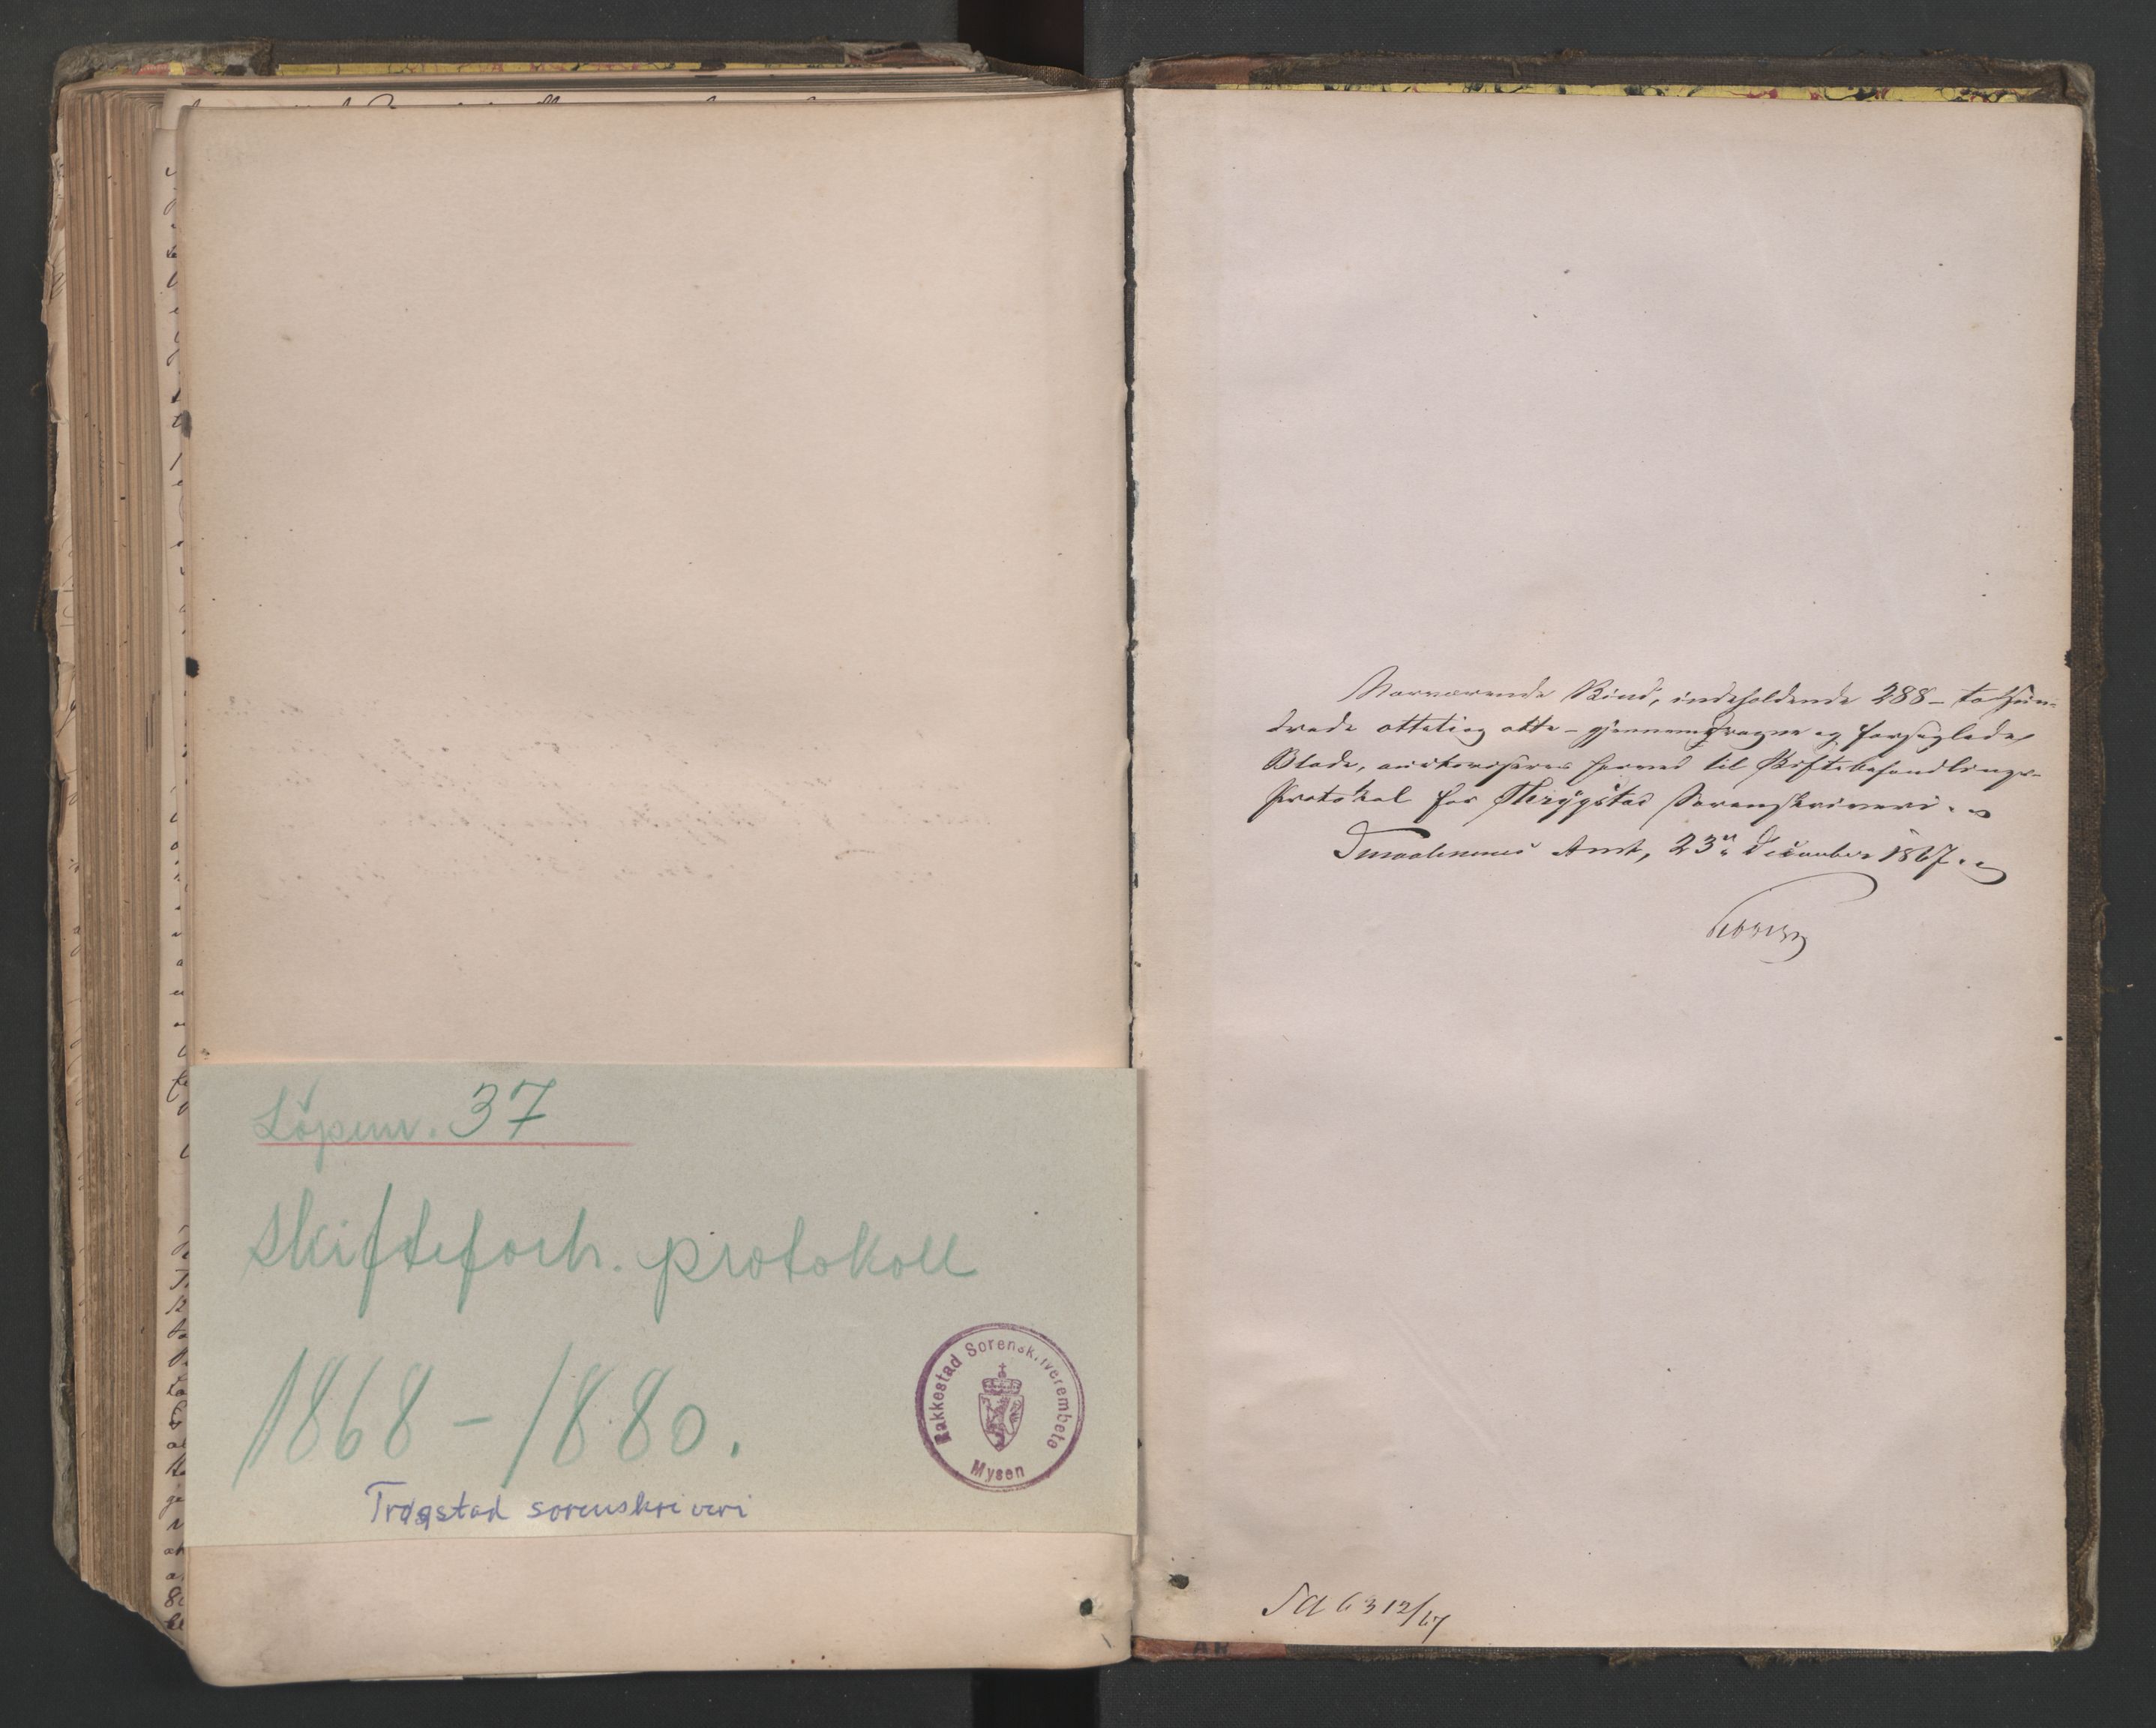 Löpenr. 37
Skifteforh. protokoll
1868 – 1880.
Trøgstad sorenskriveri
Rakkestad Sorenskriverembete
Mysen
Nærværende Bind, indeholdende 288 – tohun-
drede ottetiog otte – gjennemdragne og forseglede
Blade, authoriseres herved til Skiftebehandlings-
Protokol for Thrygstad Sorenskriveri.
Smaalenenes Amt, 23de December 1867.